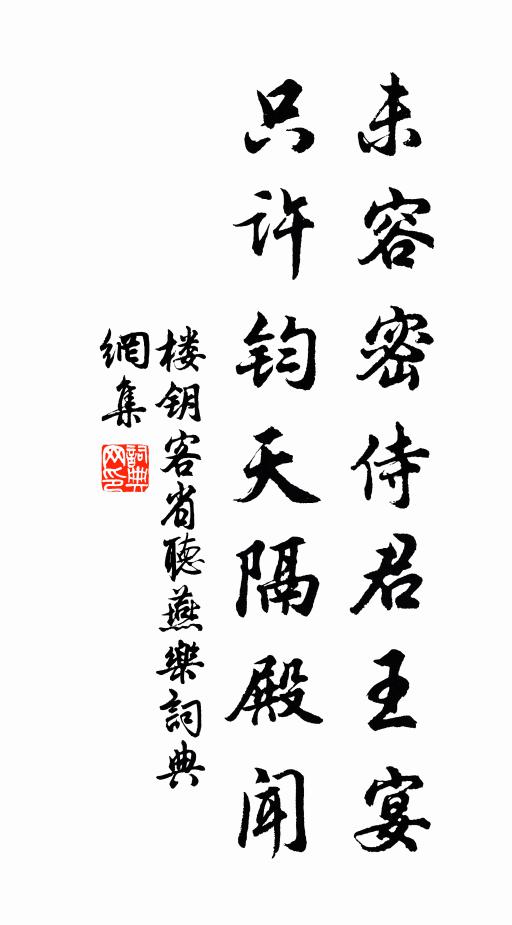 未容密侍君王宴
只许钧天隔殿闻
楼钥客省聽燕樂詞典
網集
詞典
网印